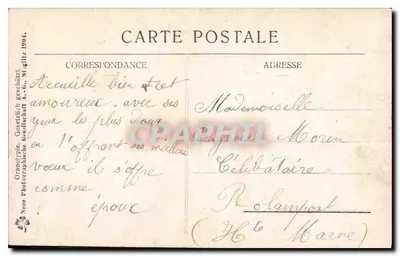 CARTE POSTALE
CORRESPONDANCE
Accueille bien cet
amoureux, avec ses
yeux les plus doux
en t'offrant ses meilleurs
voeux il s'offre
comme
époux
ADRESSE
Mademoiselle
Morin
Célibataire
Rolampont
(Hte Marne)
CPAPHIL
Neue Photographische Gesellschaft A.-G., Steglitz 1904.